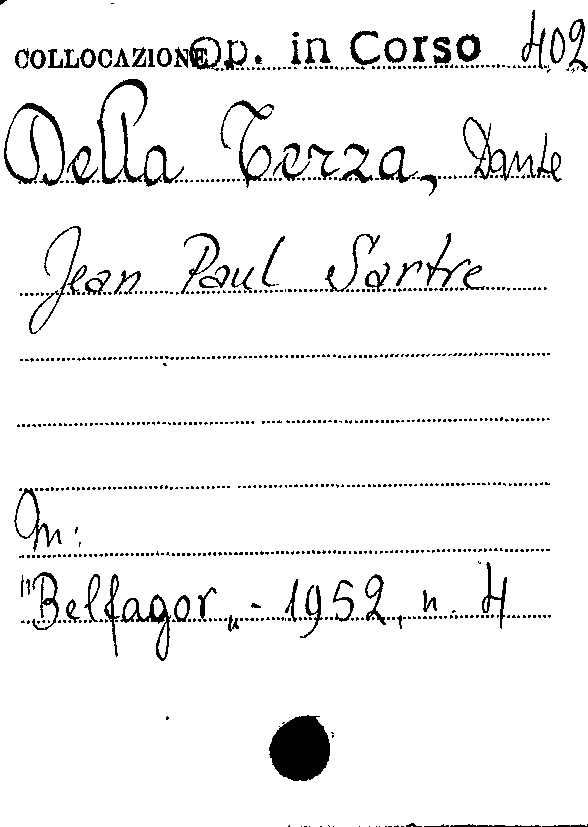 COLLOCAZIONE Op. in Corso 402
Della Terza, Dante
Jean Paul Sartre
In:
"Belfagor„ - 1952, n. 4